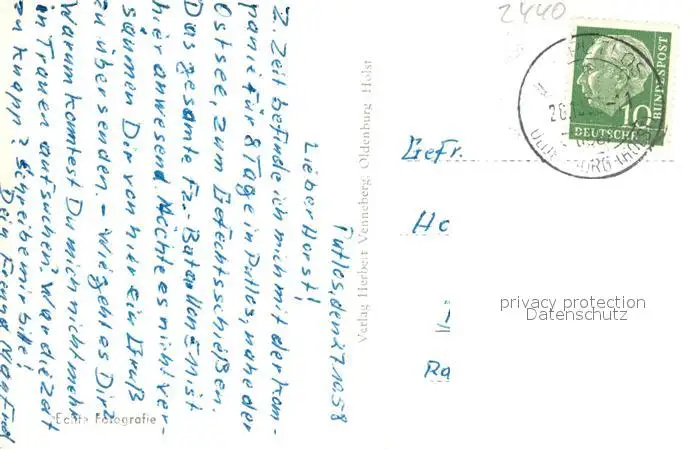 2440
Putlos, den 27.10.58
Lieber Horst!
Z. Zeit befinde ich mich mit der Kom-
panie für 8 Tage in Putlos, nahe der
Ostsee, zum Gefechtsschießen.
Das gesamte Fz.-Bataillon ist
hier anwesend. Möchte es nicht ver-
säumen Dir von hier ein Gruß
zu übersenden. - Wie geht es Dir?
Warum komtest Du mich nicht mehr
in Trauen aufsuchen? War die Zeit
zu knapp? Schreibe mir bitte!
Dein Freund Manfred
Verlag Herbert Venneberg, Oldenburg Holst
Echte Fotografie
Gefr.
Ho
Ra
10
DEUTSCHE
BUNDESPOST
privacy protection
Datenschutz